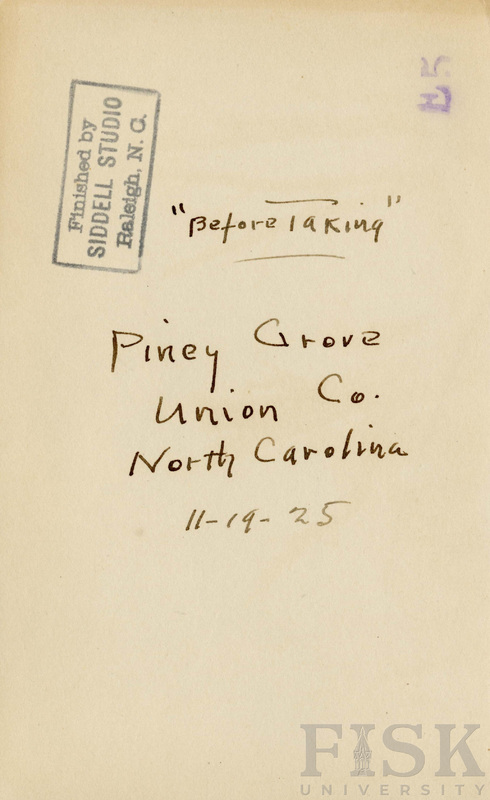 E5
Finished by
SIDDELL STUDIO
Raleigh, N. C.
"Before Taking"
Piney Grove
Union Co.
North Carolina
11-19-25
FISK
UNIVERSITY